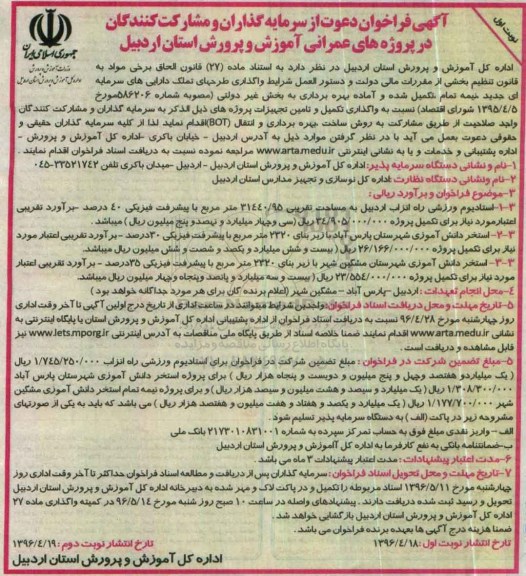 نوبت اول
آگهی فراخوان دعوت از سرمایه گذاران و مشارکت کنندگان
در پروژه های عمرانی آموزش و پرورش استان اردبیل
جمهوری اسلامی ایران
اداره کل آموزش و پرورش استان اردبیل در نظر دارد به استناد ماده (۲۷) قانون الحاق برخی مواد به
قانون تنظیم بخشی از مقررات مالی دولت و دستور العمل شرایط واگذاری طرحهای تملک دارایی های سرمایه
ای جدید نیمه تمام تکمیل شده و آماده بهره برداری به بخش غیر دولتی (مصوبه شماره ۵۸۶۲۰۶ مورخ
۱۳۹۵/۴/۵ شورای اقتصاد) نسبت به واگذاری تکمیل و تامین تجهیزات پروژه های ذیل الذکر به سرمایه گذار و مشارکت کنندگان
واجد صلاحیت از طریق مشارکت به روش ساخت بهره برداری و انتقال (BOT) اقدام نماید لذا از کلیه سرمایه گذاران حقیقی و
حقوقی دعوت بعمل می آید با در نظر گرفتن موارد ذیل به آدرس اردبیل - خیابان باکری -اداره کل آموزش و پرورش -
اداره پشتیبانی و خدمات و یا به نشانی اینترنتی www.arta.medu.ir مراجعه نموده نسبت به دریافت اسناد فراخوان اقدام نمایند .
۱-نام ونشانی دستگاه سرمایه پذیر: اداره کل آموزش و پرورش استان اردبیل - اردبیل -میدان باکری تلفن ۳۳۵۲۱۷۴۲-۰۴۵
۲-نام ونشانی دستگاه نظارت: اداره کل نوسازی و تجهیز مدارس استان اردبیل
۳-موضوع فراخوان و برآورد ریالی :
۳-۱-استادیوم ورزشی راه انزاب اردبیل به مساحت تقریبی ۳۱۴۴۰/۹۵ متر مربع با پیشرفت فیزیکی ۴۰ درصد -برآورد تقریبی
اعتبار مورد نیاز برای تکمیل پروژه ۳۴/۹۰۵/۰۰۰/۰۰۰ ریال (سی وچهار میلیارد و نهصد و پنج میلیون ریال) میباشد.
۳-۲- استخر دانش آموزی شهرستان پارس آباد با زیر بنای ۲۳۲۰ متر مربع با پیشرفت فیزیکی ۳۰درصد - برآورد تقریبی اعتبار مورد
نیاز برای تکمیل پروژه ۲۶/۱۶۶/۰۰۰/۰۰۰ ریال (بیست و شش میلیارد و یکصد و شصت و شش میلیون ریال میباشد.
۳-۳- استخر دانش آموزی شهرستان مشگین شهر با زیر بنای ۲۳۲۰ متر مربع با پیشرفت فیزیکی ۳۵درصد - برآورد تقریبی اعتبار
مورد نیاز برای تکمیل پروژه ۲۳/۵۵۴/۰۰۰/۰۰۰ ریال (بیست و سه میلیارد و پانصد و پنجاه وچهار میلیون ریال میباشد.
۴-محل انجام تعهدات : اردبیل -پارس آباد - مشگین شهر (اعلام برنده گان برای هر مورد جداگانه خواهد بود)
۵-تاریخ مهلت و محل دریافت اسناد فراخوان: واجدین شرایط میتوانند در ساعت اداری از تاریخ درج اولین آگهی تا آخر وقت اداری
روز چهارشنبه مورخ ۹۶/۴/۲۸ نسبت به دریافت اسناد فراخوان از اداره پشتیبانی اداره کل آموزش و پرورش استان یا پایگاه اینترنتی به
نشانی www.arta.medu.ir اقدام نمایند ضمنا خلاصه اسناد از طریق پایگاه ملی مناقصات به آدرس اینترنتی www.iets.mporg.ir نیز
قابل مشاهده و دریافت است .
۵-مبلغ تضمین شرکت در فراخوان : مبلغ تضمین شرکت در فراخوان برای استادیوم ورزشی راه انزاب ۱/۷۴۵/۲۵۰/۰۰۰ ریال
( یک میلیاردو هفتصد وچهل و پنج میلیون و دویست و پنجاه هزار ریال ) برای پروژه استخر دانش آموزی شهرستان پارس آباد
۱/۳۰۸/۳۰۰/۰۰۰ ریال ( یک میلیارد و سیصد و هشت میلیون و سیصد هزار ریال ) و برای پروژه نیمه تمام استخر دانش آموزی مشگین
شهر ۱/۱۷۷/۷۰۰/۰۰۰ ریال ( یک میلیارد و یکصد و هفتاد و هفت میلیون و هفتصد هزار ریال ) می باشد که باید به یکی از صورتهای
مشروحه زیر در پاکت (الف ) به دستگاه سرمایه پذیر تسلیم شود.
الف - واریز نقدی مبلغ فوق به حساب تمرکز سپرده به شماره ۲۱۷۳۰۱۰۸۳۱۰۰۱ بانک ملی
ب-ضمانتنامه بانکی به نفع کارفرما به اداره کل آموزش و پرورش استان اردبیل
۶-مدت اعتبار پیشنهادات : مدت اعتبار پیشنهادات ۳ ماه می باشد .
۷-تاریخ مهلت و محل تحویل اسناد فراخوان: سرمایه گذاران پس از دریافت و مطالعه اسناد فراخوان حداکثر تا آخر وقت اداری روز
چهارشنبه مورخ ۱۳۹۶/۵/۱۱ اسناد مربوطه را تکمیل و در پاکت لاک و مهر شده به دبیرخانه اداره کل آموزش و پرورش استان اردبیل
تحویل و رسید ثبت شده دریافت دارند . پیشنهادهای واصله در ساعت ۱۰ صبح روز شنبه مورخ ۹۶/۵/۱۴ در کمیته واگذاری ماده ۲۷
اداره کل آموزش و پرورش استان اردبیل بازگشایی خواهد شد.
ضمنا هزینه درج آگهی ها بعهده برنده فراخوان می باشد .
تاریخ انتشار نوبت اول : ۱۳۹۶/۴/۱۸ تاریخ انتشار نوبت دوم : ۱۳۹۶/۴/۱۹
اداره کل آموزش و پرورش استان اردبیل